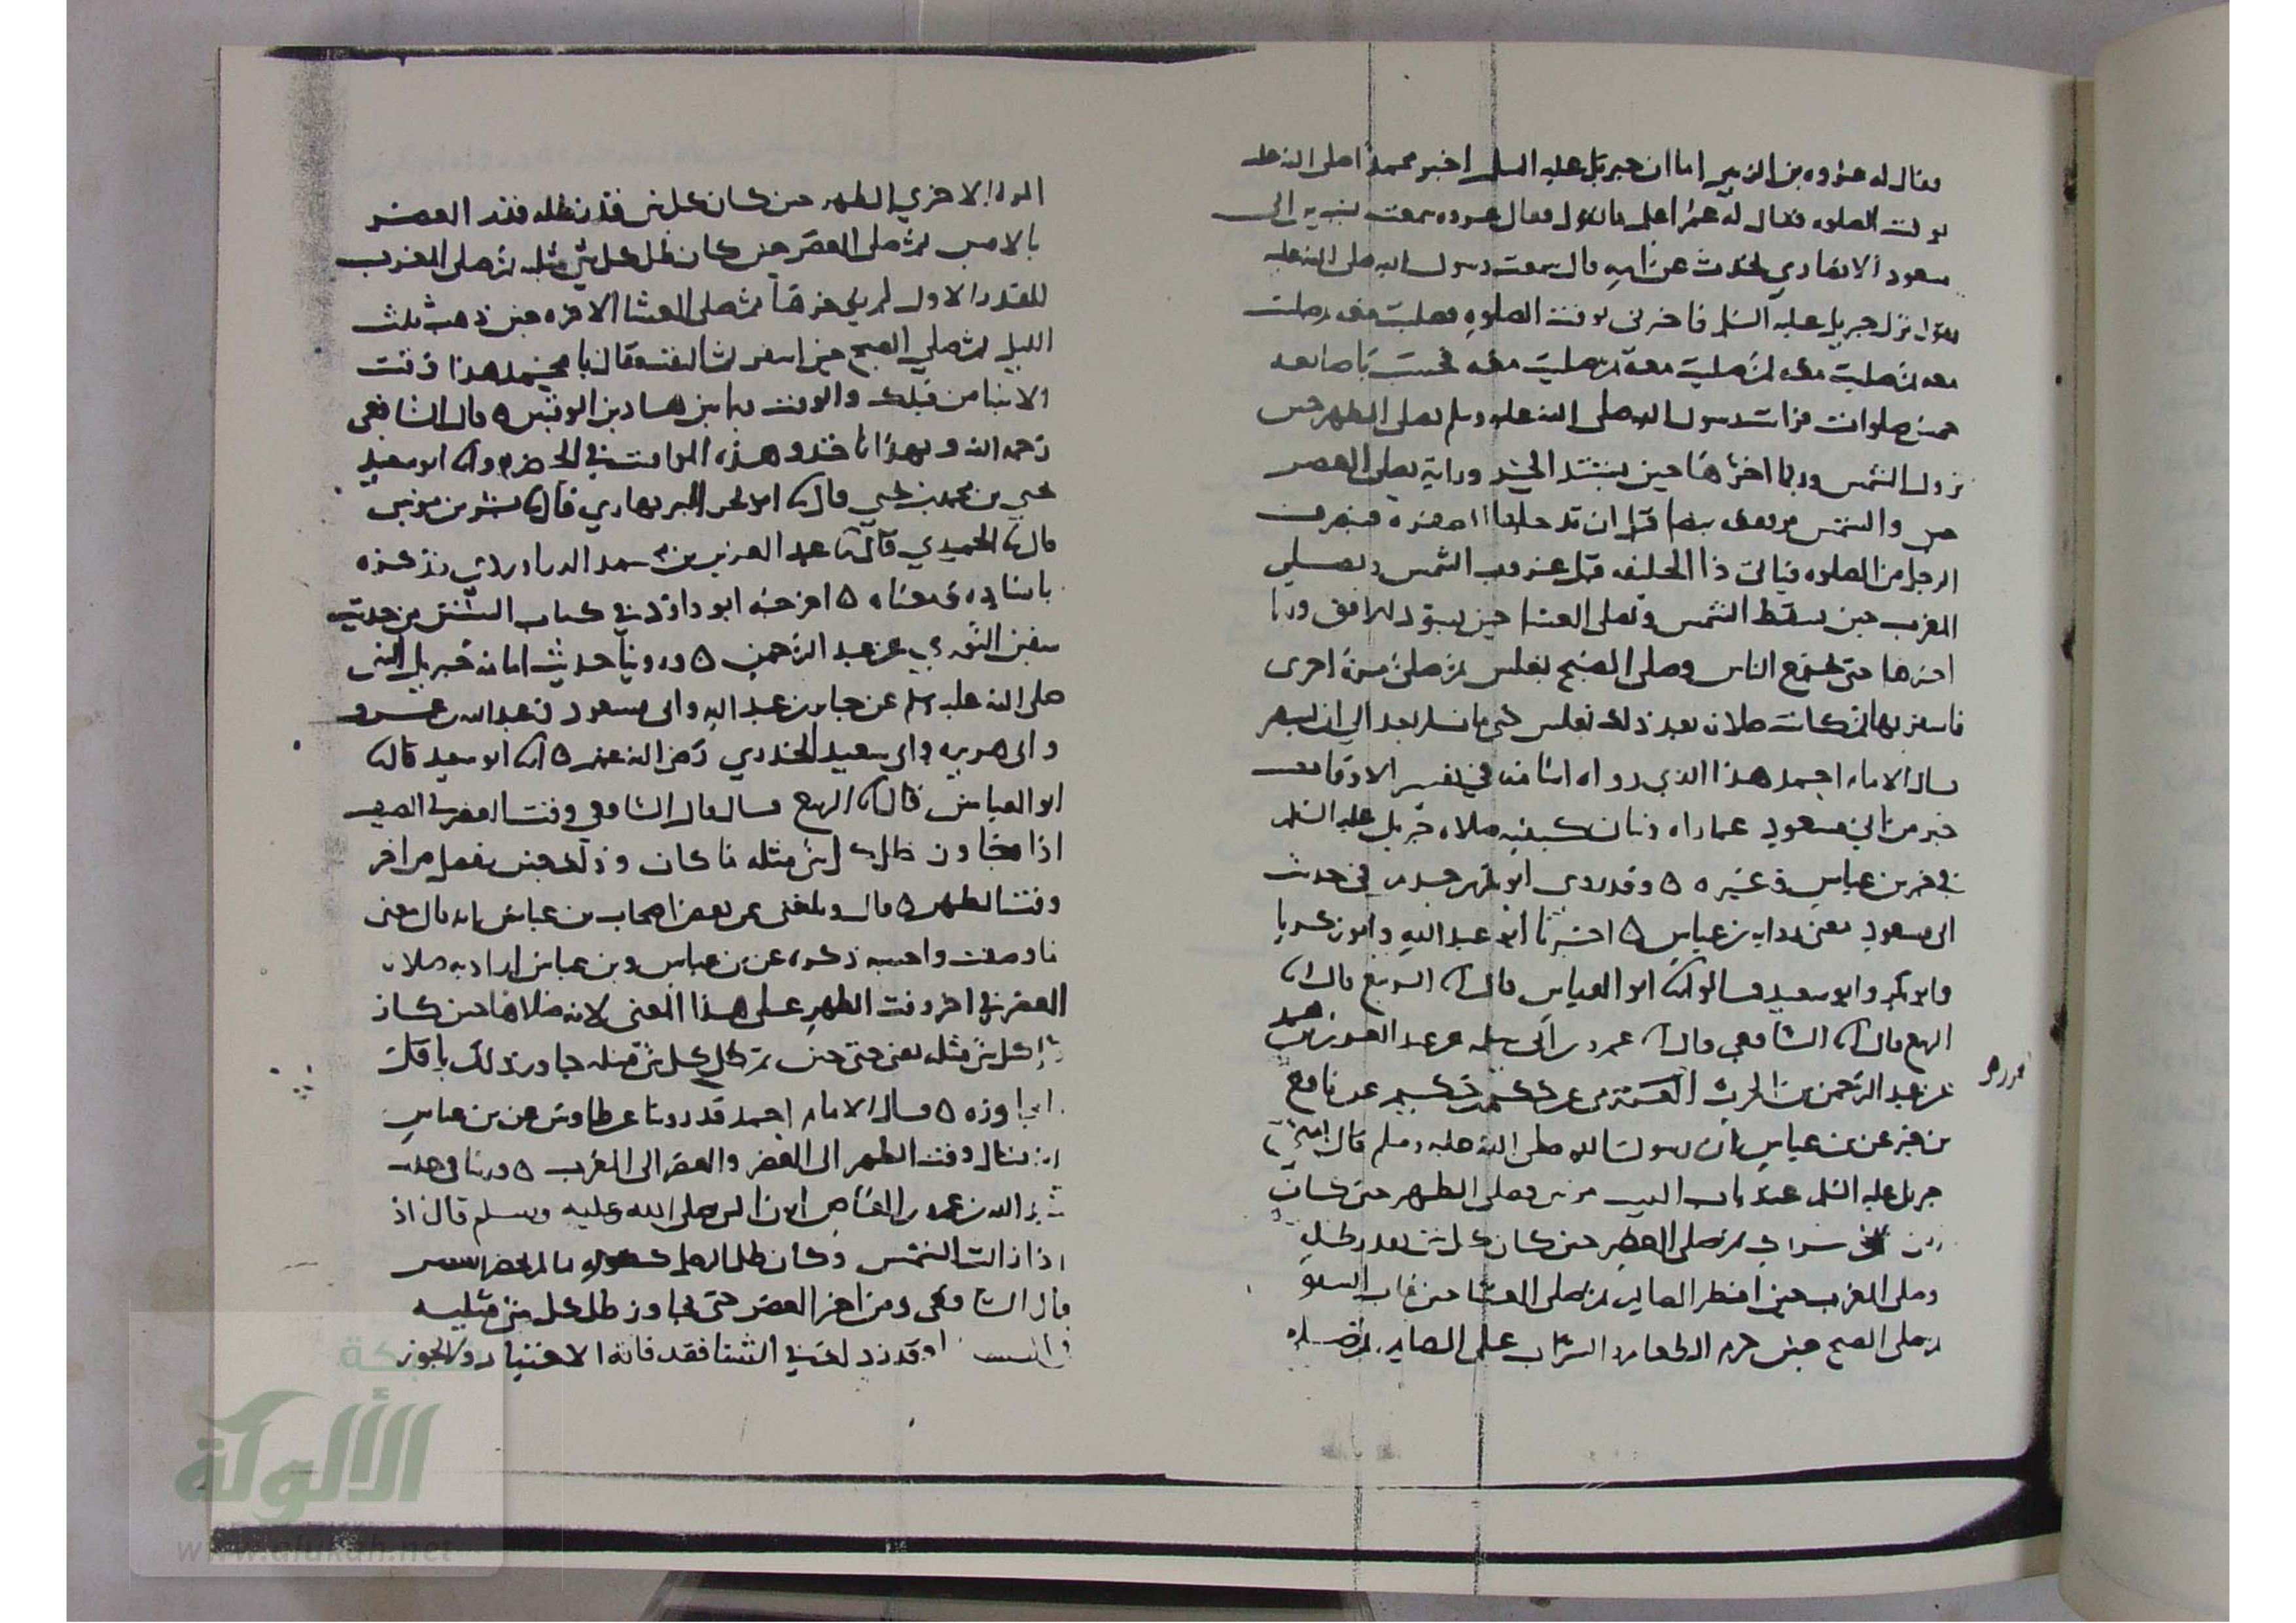 فقال له عروه بن الزبير اما ان جبريل عليه السلم اخبر محمدا صلى الله عليه
بوقت الصلوه فقال له عمر اعلم ما تقول فقال عروه سمعت بشير بن ابى
مسعود الانصاري يحدث عن ابيه قال سمعت رسول الله صلى الله عليه
يقول نزل جبريل عليه السلم فاخبرنى بوقت الصلوه فصليت معه ثم صليت
معه ثم صليت معه ثم صليت معه ثم صليت معه يحسب باصابعه
خمس صلوات فرايت رسول الله صلى الله عليه وسلم يصلى الظهر حين
تزول الشمس وربما اخرها حين يشتد الحر ورايته يصلى العصر
والشمس مرتفعه بيضا قبل ان تدخلها الصفره فينصرف
الرجل من الصلوه فياتى ذا الحليفه قبل غروب الشمس ويصلي
المغرب حين يسقط الشمس ويصلى العشا حين يسود الافق وربما
اخرها حتى يجتمع الناس وصلى الصبح بغلس ثم صلى مرة اخرى
فاسفر بها ثم كانت صلاته بعد ذلك بغلس حتى مات لم يعد الى ان يسفر
قال الامام احمد هذا الذي رواه اسامه في تفسير الاوقات
خبر من ابى مسعود عما راه وبيان كيفيه صلاه جبريل عليه السلم
في خبر بن عباس وغيره ٥ وقد روى ابو بكر بن حزم في حديث
ابى مسعود معنى روايه بن عباس ٥ اخبرنا ابو عبد الله وابو زكريا
وابو بكر وابو سعيد قالوا ابو العباس قال الربيع قال
الربيع قال الشافعي قال عمرو بن ابى سلمه عن عبد العزيز بن محمد
عن عبد الرحمن بن الحرث عن حكيم بن حكيم عن نافع
بن جبير عن بن عباس ان رسول الله صلى الله عليه وسلم قال امنى
جبريل عليه السلم عند باب البيت مرتين فصلى الظهر حين كان
ثم صلى العصر حين كان كل شى بقدر ظله
وصلى المغرب حين افطر الصايم ثم صلى العشا حين غاب الشفق
ثم صلى الصبح حين حرم الطعام والشراب على الصايم ثم صلى
المره الاخري الظهر حين كان كل شى قدر ظله قدر العصر
بالامس ثم صلى العصر حين كان ظل كل شى مثليه ثم صلى المغرب
للقدر الاول لم يوخرها ثم صلى العشا الاخره حين ذهب ثلث
الليل ثم صلي الصبح حين اسفر ثم التفت فقال يا محمد هذا وقت
الانبيا من قبلك والوقت فيما بين هذين الوقتين ٥ قال الشافعي
رحمه الله وبهذا ناخذ وهذه المواقيت في الحضر ابو سعيد
يحيي بن محمد بن يحيي قال ابو بحر البربهاري قال بشر بن موسى
قال الحميدي قال عبد العزيز بن محمد الدراوردي فذكره
باسناده ومعناه ٥ اخرجه ابو داود في كتاب السنن من حديث
سفين الثوري عن عبد الرحمن ٥ وروينا حديث امامه جبريل النبى
صلى الله عليه وسلم عن جابر بن عبد الله وابى مسعود وعبد الله بن عمرو
وابى هريره وابى سعيد الخدري رضى الله عنهم ٥ ابو سعيد قال
ابو العباس قال الربيع قال قال الشافعى وقت العصر فى الصيف
اذا جاوز ظل كل شى مثله ما كان وذلك حين ينفصل من اخر
وقت الظهر ٥ قال وبلغنى عن بعض اصحاب بن عباس انه قال معنى
ما وصفت واحسبه ذكره عن بن عباس وبن عباس اراد به صلاه
العصر في اخر وقت الظهر على هذا المعنى لانه صلاها حين كان
ظل كل شى مثله يعنى حتى حين تم ظل كل شى مثله جاوز ذلك باقل
ما جاوزه ٥ قال الامام احمد قد روينا عن طاوس عن بن عباس
انه قال وقت الظهر الى العصر والعصر الى المغرب ٥ وروينا فى حديث
عبد الله بن عمرو بن العاص ان النبى صلى الله عليه وسلم قال
اذا زالت الشمس وكان ظل الرجل كطوله ما لم يحضر العصر
قال الشافعى ومن اخر العصر حتى يجاوز ظل كل شى مثليه
او قدر ذلك في الشتا فقد فاته الاختيار ولا يجوز
شبكة
الألوكة
www.alukah.net